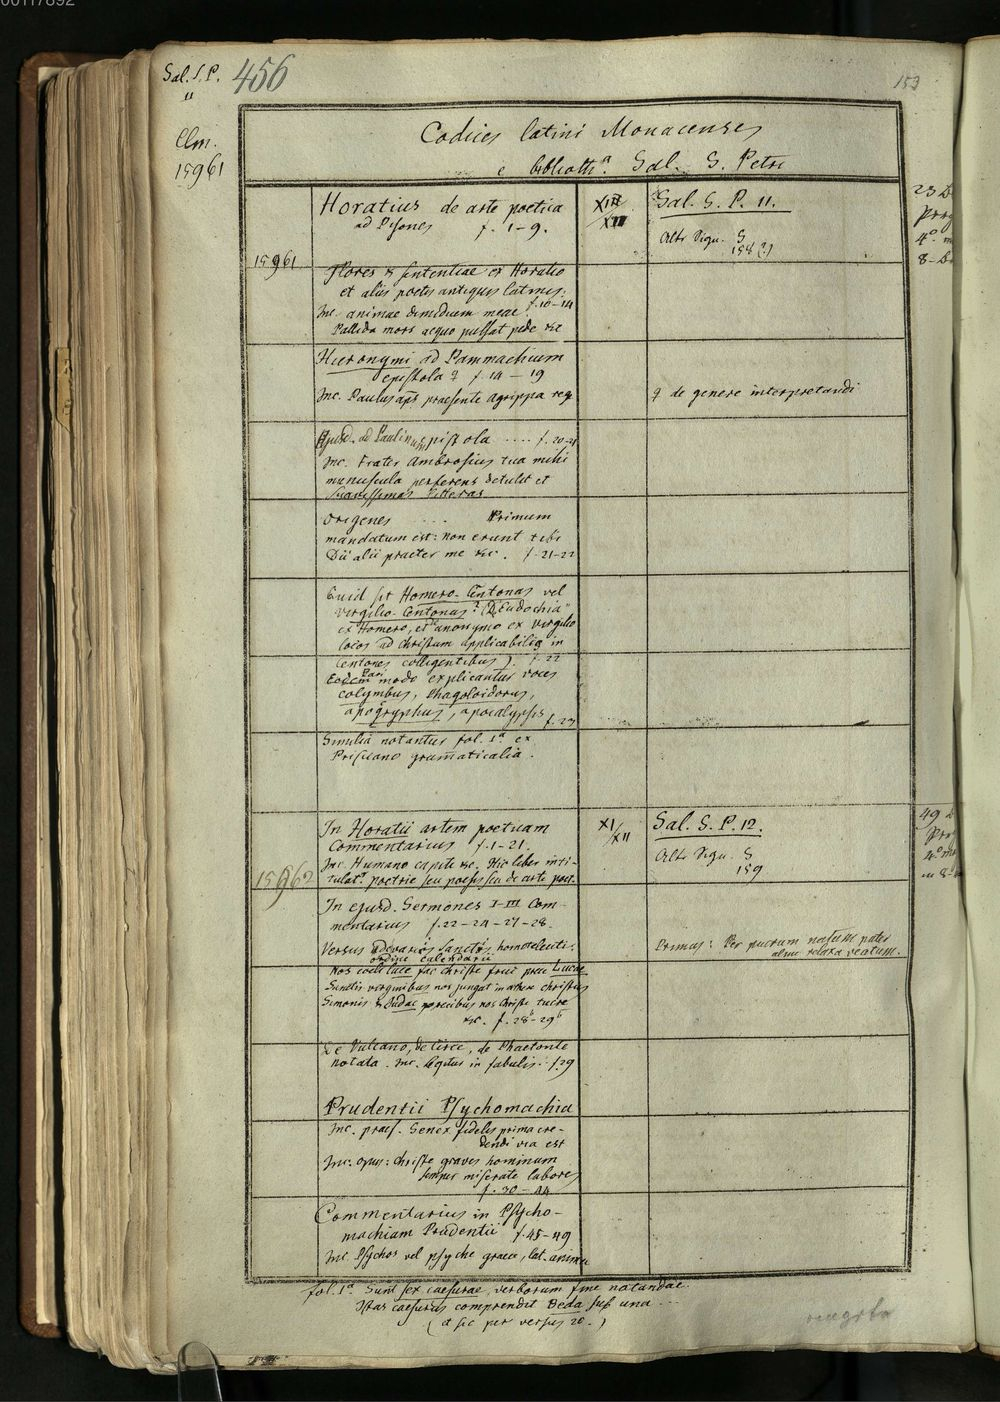 00117892
Sal. S. P.
11
456
153
Clm.
15961
Codices latini Monacenses
e biblioth.a Sal. S. Petri
15961
Horatius de arte poetica
ad Pisones f. 1-9.
XII/XIII
Sal. S. P. 11.
Alte Sign. S
158 (?)
Flores & sententiae ex Horatio
et aliis poetis antiquis latinis.
Inc. animae dimidium meae. f. 10-14
Pallida mors aequo pulsat pede &c
Hieronymi ad Pammachium
epistola ♀ f. 14 - 19
Inc. Paulus aps praesente agrippa reg
♀ de genere interpretandi
Ejusd. ad Paulinum epistola .... f. 20-21
Inc. Frater ambrosius tua mihi
munuscula perferens detulit et
suavissimas litteras
Origenes .... Primum
mandatum est: non erunt tibi
Dii alii praeter me &c. f. 21-22
Quid sit Homero-Centonas vel
Virgilio-Centonas? (Eudochia
ex Homero, et anonymo ex virgilio
locos ad christum applicabiles in
Centones colligentibus). f. 22
Pari
Eodem modo explicantur voces
colymbus, Phagoloidorus,
apogryphus, apocalypsis f. 23
Similia notantur fol. 1a ex
Prisciano grammaticalia.
15962
In Horatii artem poeticam
Commentarius f. 1-21.
XI/XII
Sal. S. P. 12.
Alte Sign. S
159
Inc. Humano capite &c. Hic liber inti-
tulat. poetrie seu poesis seu de arte poet.
In ejusd. Sermones I-III Com-
mentarius f. 22-24-27-28.
Versus de variis Sanctis homoteleuti.
ordine calendarii
Primus: Per puerum natum pater
alme relaxa reatum.
Nos coeli luce fac christe frui prece Lucae
Sanctis virginibus nos jungat in aethere christus
Simonis & Judae precibus nos christe tuere
&c. f. 28b-29b
De Vulcano, de Circe, de Phaetonte
notata. Inc. legitur in fabulis. f. 29
Prudentii Psychomachia
Inc. praef. Senex fidelis prima cre-
dendi via est
Inc. opus: christe graves hominum
semper miserate labores
f. 30-44
Commentarius in Psycho-
machiam Prudentii f. 45-49
Inc. Psychos vel psyche graece, lat. anima
fol. 1a Sunt sex caesurae verborum fine notandae.
Istas caesuras comprendit Beda sub una ...
(et sic per versus 20.)